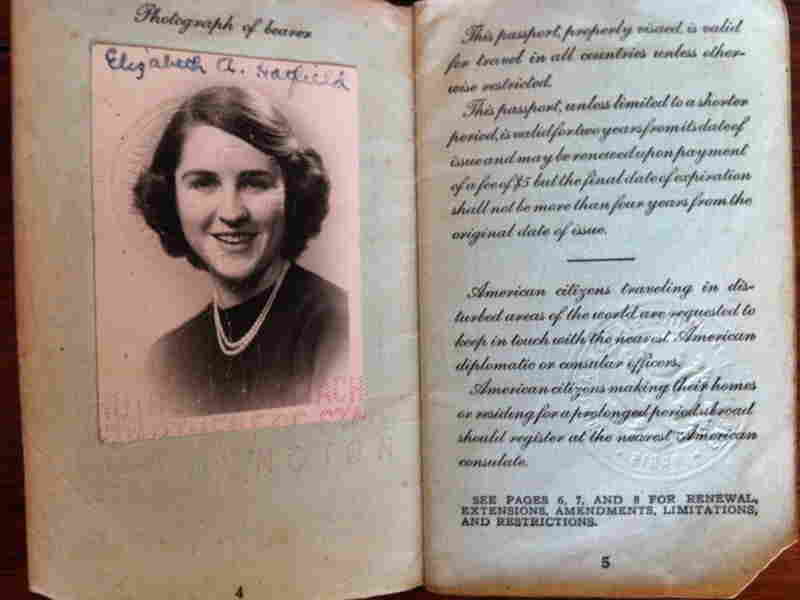 Photograph of bearer
Elizabeth A. Hatfield
4
This passport, properly visaed, is valid
for travel in all countries unless other-
wise restricted.
This passport, unless limited to a shorter
period, is valid for two years from its date of
issue and may be renewed upon payment
of a fee of $5 but the final date of expiration
shall not be more than four years from the
original date of issue.
American citizens traveling in dis-
turbed areas of the world are requested to
keep in touch with the nearest American
diplomatic or consular officers.
American citizens making their homes
or residing for a prolonged period abroad
should register at the nearest American
consulate.
SEE PAGES 6, 7, AND 8 FOR RENEWAL,
EXTENSIONS, AMENDMENTS, LIMITATIONS,
AND RESTRICTIONS.
5